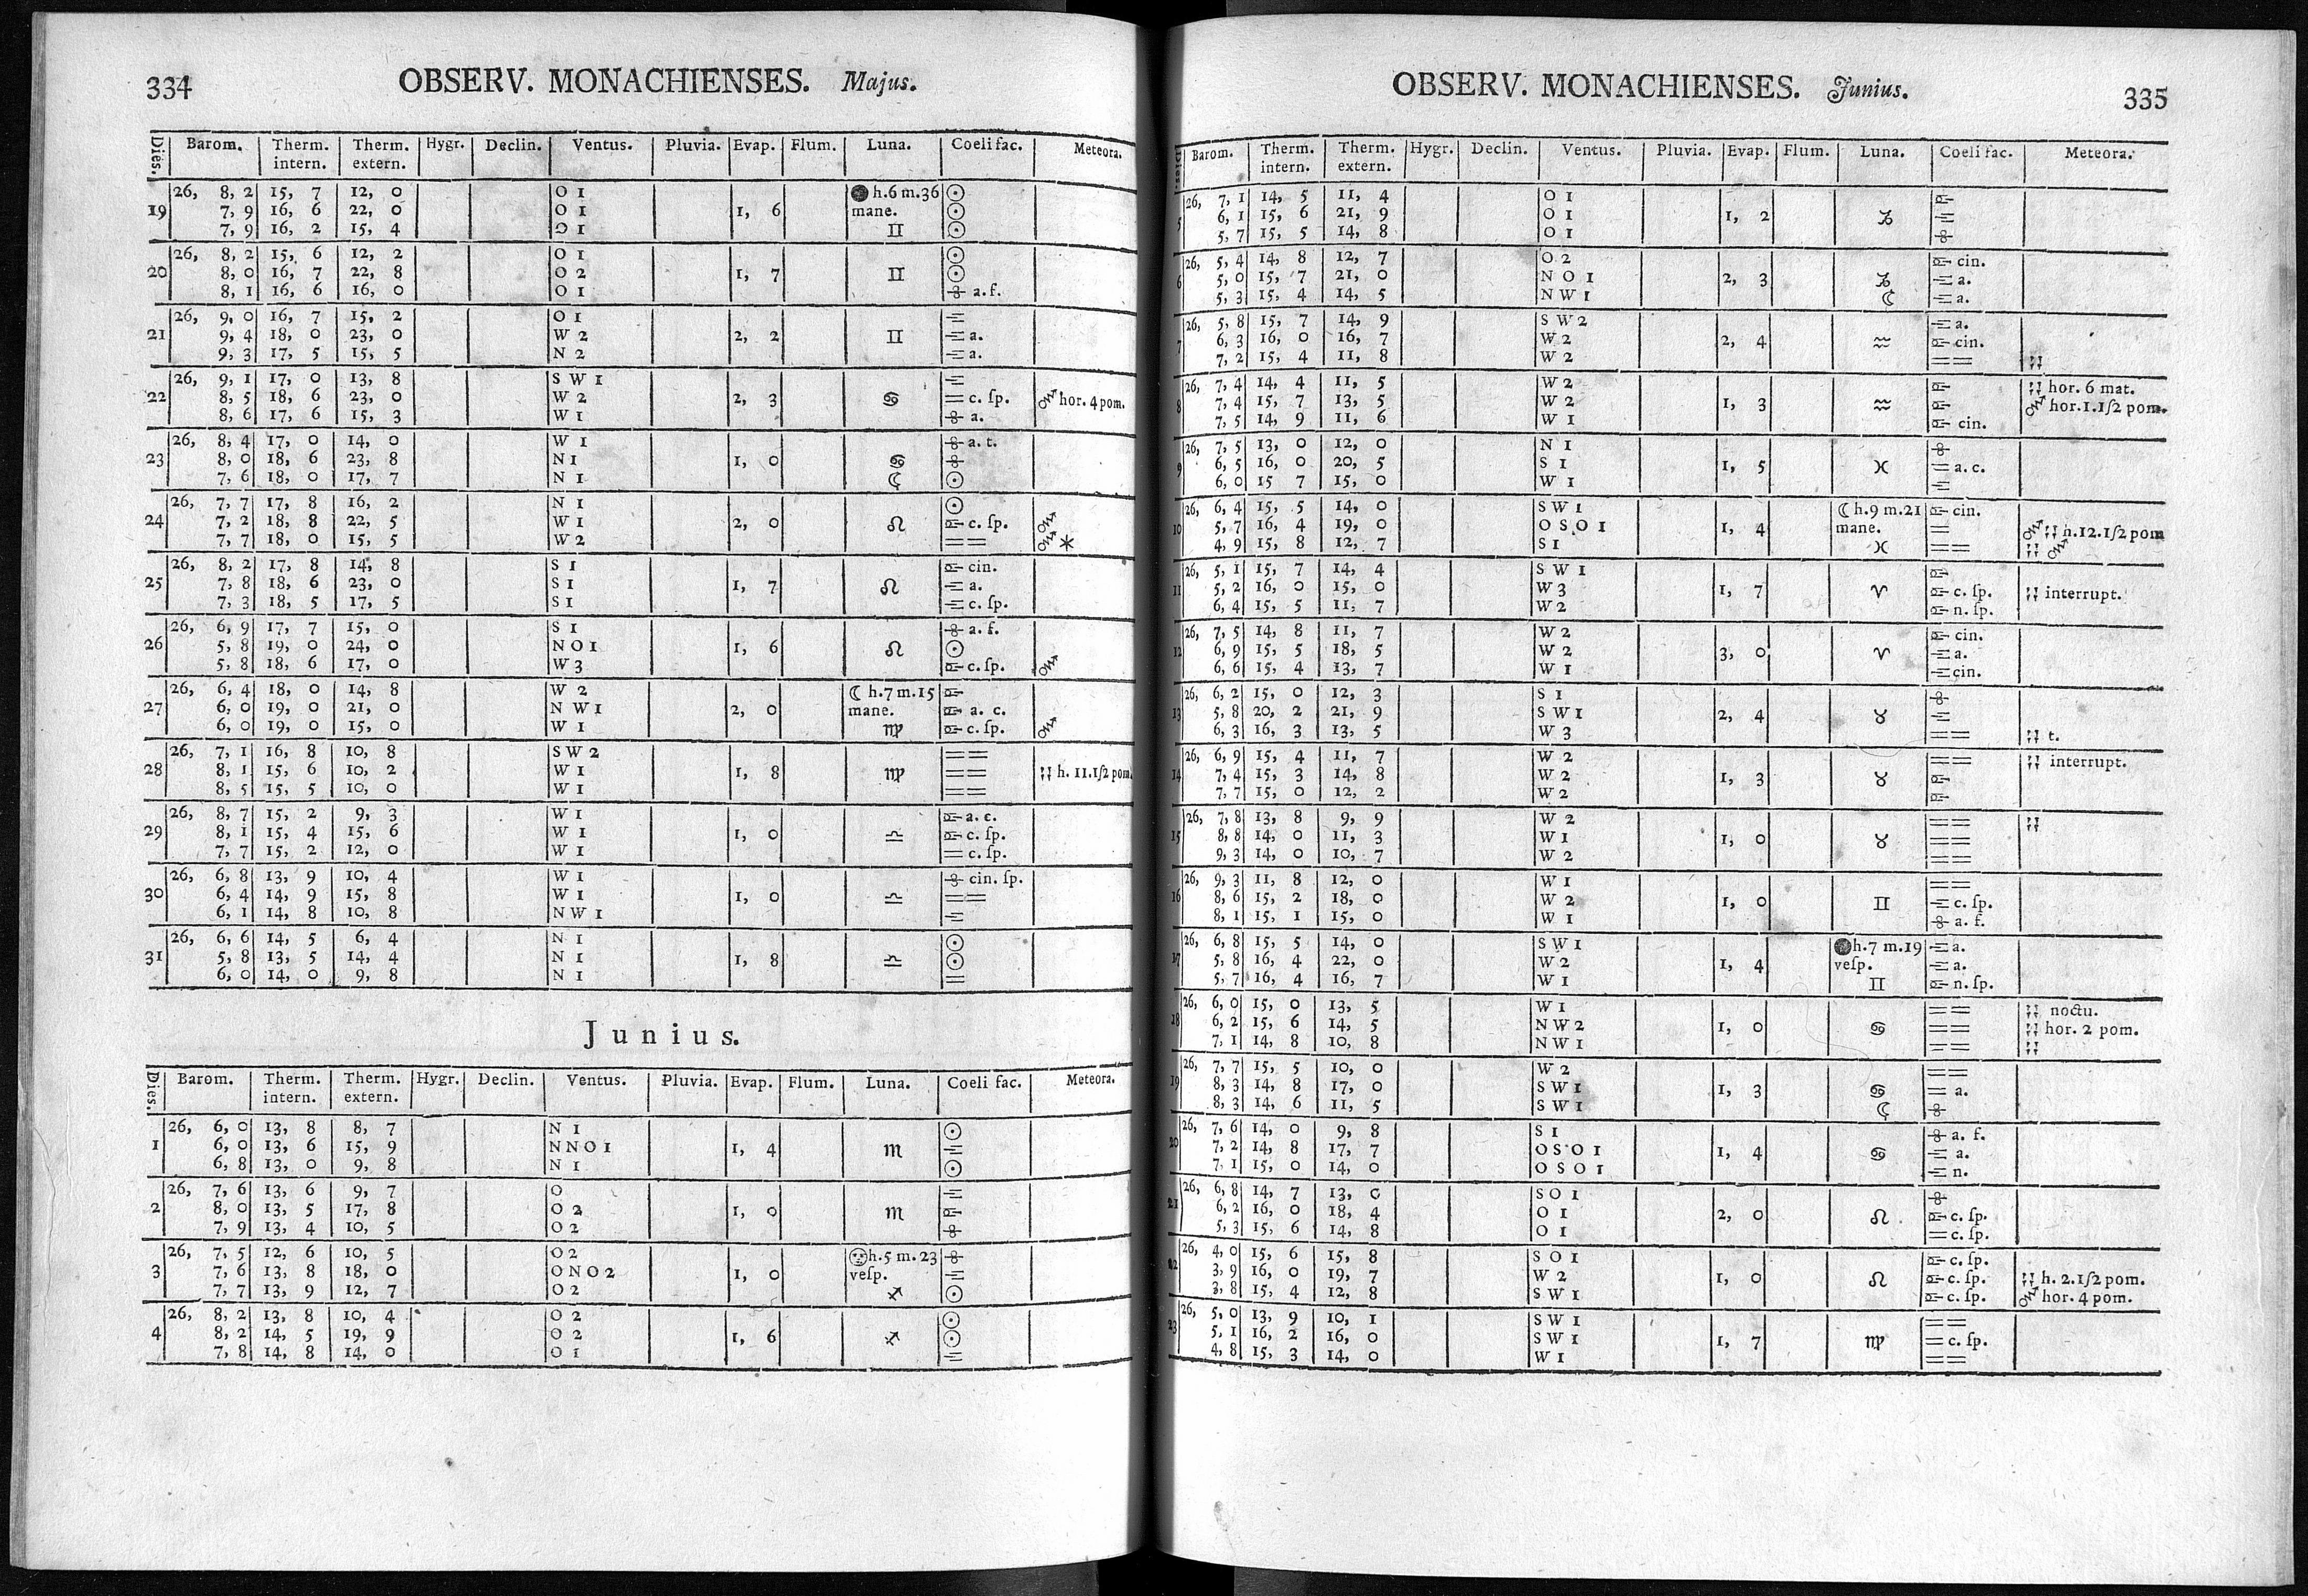 334 OBSERV. MONACHIENSES. Majus.
Dies. Barom. Therm. intern. Therm. extern. Hygr. Declin. Ventus. Pluvia. Evap. Flum. Luna. Coeli fac. Meteora.
26, 8, 2 15, 7 12, 0 O 1 h. 6 m. 36 ☉
19 7, 9 16, 6 22, 0 O 1 1, 6 mane. ☉
7, 9 16, 2 15, 4 O 1 ♊ ☉
26, 8, 2 15, 6 12, 2 O 1 ☉
20 8, 0 16, 7 22, 8 O 2 1, 7 ♊ ☉
8, 1 16, 6 16, 0 O 1 a. f.
26, 9, 0 16, 7 15, 2 O 1
21 9, 4 18, 0 23, 0 W 2 2, 2 ♊ a.
9, 3 17, 5 15, 5 N 2 a.
26, 9, 1 17, 0 13, 8 S W 1
22 8, 5 18, 6 23, 0 W 2 2, 3 ♋ = c. ſp. hor. 4 pom.
8, 6 17, 6 15, 3 W 1 a.
26, 8, 4 17, 0 14, 0 W 1 a. t.
23 8, 0 18, 6 23, 8 N 1 1, 0 ♋
7, 6 18, 0 17, 7 N 1 ☾ ☉
26, 7, 7 17, 8 16, 2 N 1 ☉
24 7, 2 18, 8 22, 5 W 1 2, 0 ♌ c. ſp.
7, 7 18, 0 15, 5 W 2 = = *
26, 8, 2 17, 8 14, 8 S 1 cin.
25 7, 8 18, 6 23, 0 S 1 1, 7 ♌ a.
7, 3 18, 5 17, 5 S 1 c. ſp.
26, 6, 9 17, 7 15, 0 S 1 a. f.
26 5, 8 19, 0 24, 0 N O 1 1, 6 ♌ ☉
5, 8 18, 6 17, 0 W 3 c. ſp.
26, 6, 4 18, 0 14, 8 W 2 ☾ h. 7 m. 15
27 6, 0 19, 0 21, 0 N W 1 2, 0 mane. a. c.
6, 0 19, 0 15, 0 W 1 ♍ c. ſp.
26, 7, 1 16, 8 10, 8 S W 2 = =
28 8, 1 15, 6 10, 2 W 1 1, 8 ♍ = = h. 11. 1/2 pom.
8, 5 15, 5 10, 0 W 1 = =
26, 8, 7 15, 2 9, 3 W 1 a. c.
29 8, 1 15, 4 15, 6 W 1 1, 0 ♎ c. ſp.
7, 7 15, 2 12, 0 W 1 = c. ſp.
26, 6, 8 13, 9 10, 4 W 1 cin. ſp.
30 6, 4 14, 9 15, 8 W 1 1, 0 ♎ = =
6, 1 14, 8 10, 8 N W 1
26, 6, 6 14, 5 6, 4 N 1 ☉
31 5, 8 13, 5 14, 4 N 1 1, 8 ♎ ☉
6, 0 14, 0 9, 8 N 1 =
Junius.
Dies. Barom. Therm. intern. Therm. extern. Hygr. Declin. Ventus. Pluvia. Evap. Flum. Luna. Coeli fac. Meteora.
26, 6, 0 13, 8 8, 7 N 1 ☉
1 6, 0 13, 6 15, 9 N N O 1 1, 4 ♏
6, 8 13, 0 9, 8 N 1 ☉
26, 7, 6 13, 6 9, 7 O
2 8, 0 13, 5 17, 8 O 2 1, 0 ♏
7, 9 13, 4 10, 5 O 2
26, 7, 5 12, 6 10, 5 O 2 h. 5 m. 23
3 7, 6 13, 8 18, 0 O N O 2 1, 0 veſp.
7, 7 13, 9 12, 7 O 2 ♐ ☉
26, 8, 2 13, 8 10, 4 O 2 ☉
4 8, 2 14, 5 19, 9 O 2 1, 6 ♐ ☉
7, 8 14, 8 14, 0 O 1
OBSERV. MONACHIENSES. Junius. 335
Dies. Barom. Therm. intern. Therm. extern. Hygr. Declin. Ventus. Pluvia. Evap. Flum. Luna. Coeli fac. Meteora.
26, 7, 1 14, 5 11, 4 O 1
5 6, 1 15, 6 21, 9 O 1 1, 2 ♑
5, 7 15, 5 14, 8 O 1
26, 5, 4 14, 8 12, 7 O 2 cin.
6 5, 0 15, 7 21, 0 N O 1 2, 3 ♑ a.
5, 3 15, 4 14, 5 N W 1 ☾ a.
26, 5, 8 15, 7 14, 9 S W 2 a.
7 6, 3 16, 0 16, 7 W 2 2, 4 ♒ cin.
7, 2 15, 4 11, 8 W 2 = =
26, 7, 4 14, 4 11, 5 W 2 hor. 6 mat.
8 7, 4 15, 7 13, 5 W 2 1, 3 ♒ hor. 1. 1/2 pom.
7, 5 14, 9 11, 6 W 1 cin.
26, 7, 5 13, 0 12, 0 N 1
9 6, 5 16, 0 20, 5 S 1 1, 5 ♓ = a. c.
6, 0 15 7 15, 0 W 1
26, 6, 4 15, 5 14, 0 S W 1 ☾ h. 9 m. 21 cin.
10 5, 7 16, 4 19, 0 O S O 1 1, 4 mane. = h. 12. 1/2 pom
4, 9 15, 8 12, 7 S 1 ♓ = =
26, 5, 1 15, 7 14, 4 S W 1
11 5, 2 16, 0 15, 0 W 3 1, 7 ♈ c. ſp. interrupt.
6, 4 15, 5 11, 7 W 2 n. ſp.
26, 7, 5 14, 8 11, 7 W 2 cin.
12 6, 9 15, 5 18, 5 W 2 3, 0 ♈ a.
6, 6 15, 4 13, 7 W 1 cin.
26, 6, 2 15, 0 12, 3 S 1
13 5, 8 20, 2 21, 9 S W 1 2, 4 ♉
6, 3 16, 3 13, 5 W 3 = = t.
26, 6, 9 15, 4 11, 7 W 2 = = interrupt.
14 7, 4 15, 3 14, 8 W 2 1, 3 ♉
7, 7 15, 0 12, 2 W 2
26, 7, 8 13, 8 9, 9 W 2 = =
15 8, 8 14, 0 11, 3 W 1 1, 0 ♉ = =
9, 3 14, 0 10, 7 W 2 = =
26, 9, 3 11, 8 12, 0 W 1 = =
16 8, 6 15, 2 18, 0 W 2 1, 0 ♊ c. ſp.
8, 1 15, 1 15, 0 W 1 a. f.
26, 6, 8 15, 5 14, 0 S W 1 h. 7 m. 19 a.
17 5, 8 16, 4 22, 0 W 2 1, 4 veſp. a.
5, 7 16, 4 16, 7 W 1 ♊ n. ſp.
26, 6, 0 15, 0 13, 5 W 1 = = noctu.
18 6, 2 15, 6 14, 5 N W 2 1, 0 ♋ = = hor. 2 pom.
7, 1 14, 8 10, 8 N W 1 = =
26, 7, 7 15, 5 10, 0 W 2 = =
19 8, 3 14, 8 17, 0 S W 1 1, 3 ♋ = a.
8, 3 14, 6 11, 5 S W 1 ☾
26, 7, 6 14, 0 9, 8 S 1 a. f.
20 7, 2 14, 8 17, 7 O S O 1 1, 4 ♋ a.
7, 1 15, 0 14, 0 O S O 1 n.
26, 6, 8 14, 7 13, 0 S O 1
21 6, 2 16, 0 18, 4 O 1 2, 0 ♌ c. ſp.
5, 3 15, 6 14, 8 O 1 = c. ſp.
26, 4, 0 15, 6 15, 8 S O 1 c. ſp.
22 3, 9 16, 0 19, 7 W 2 1, 0 ♌ c. ſp. h. 2. 1/2 pom.
3, 8 15, 4 12, 8 S W 1 c. ſp. hor. 4 pom.
26, 5, 0 13, 9 10, 1 S W 1 = =
23 5, 1 16, 2 16, 0 S W 1 1, 7 ♍ = c. ſp.
4, 8 15, 3 14, 0 W 1 = =